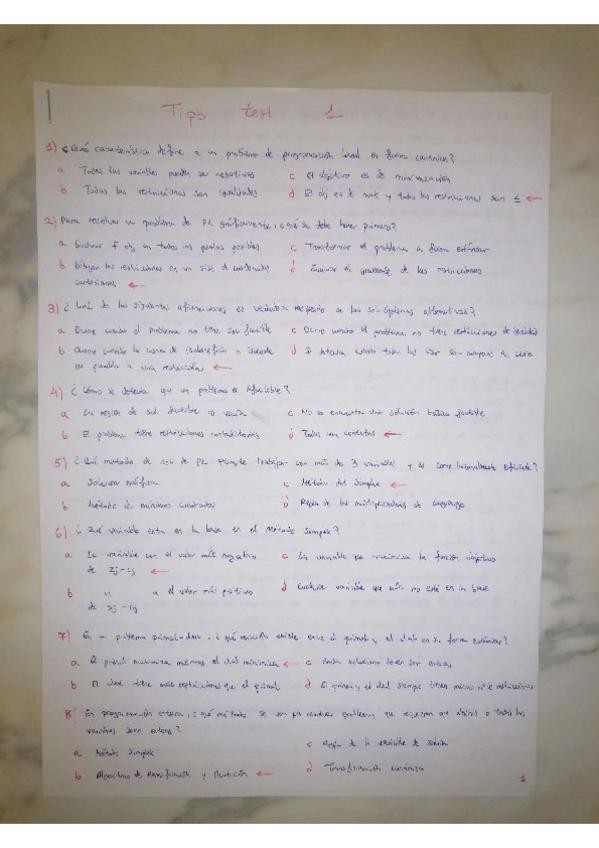 Tipo test 1
1) ¿Qué característica define a un problema de programación lineal en forma canónica?
a Todas las variables pueden ser negativas
c El objetivo es de minimización
b Todas las restricciones son igualdades
d El obj es de max y todas las restricciones son ≤ ←
2) Para resolver un problema de PL gráficamente, ¿qué se debe hacer primero?
a Evaluar f obj en todos los puntos posibles
c Transformar el problema a forma estándar
b Dibujar las restricciones en un de coordenadas
cartesianas ←
d de las restricciones
3) ¿ de las siguientes afirmaciones es verdadera respecto a las soluciones óptimas alternativas?
a Ocurre cuando el problema no tiene sol factible
c Ocurre cuando el problema no tiene restricciones de
b Ocurre cuando la
es paralela a una restricción ←
d Se cuando todas las var son a cero
4) ¿Cómo se detecta que un problema es infactible?
a La región de sol factible es vacía
c No se encuentra una solución básica factible
b El problema tiene restricciones contradictorias
d Todas son correctas ←
5) ¿Qué método de sol de PL permite trabajar con más de 3 variables y es computacionalmente eficiente?
a Solución gráfica
c Método del Simplex ←
b Método de mínimos cuadrados
d de los multiplicadores de Lagrange
6) ¿Qué variable entra en la base en el método simplex?
a La variable con el valor más negativo
de zj-cj ←
c La variable que maximiza la función objetivo
b " a el valor más positivo
de zj-cj
d Cualquier variable que aún no esté en la base
7) En un problema primal-dual, ¿qué relación existe entre el primal y el dual en su forma ?
a El primal maximiza mientras el dual minimiza ←
c Ambas soluciones deben ser enteras
b El dual tiene más restricciones que el primal
d El primal y el dual siempre tienen mismo nº de restricciones
8) En programación entera, ¿qué método se usa para resolver problemas que requieren que o todas las
variables sean enteras?
a Método Simplex
c Regla de la variable de salida
b Algoritmo de Ramificación y Acotación ←
d Transformación canónica
1